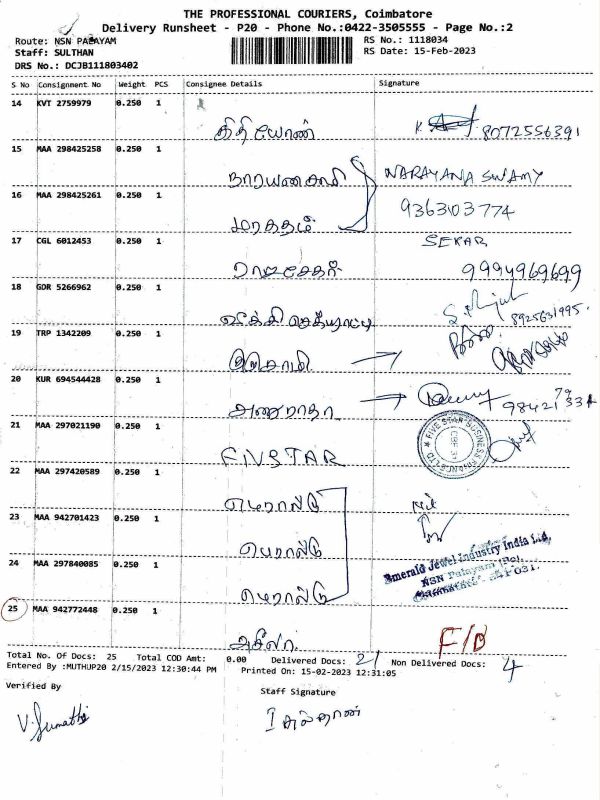 THE PROFESSIONAL COURIERS, Coimbatore
Delivery Runsheet - P20 - Phone No.:0422-3505555 - Page No.:2
Route: NSN PALAYAM RS No.: 1118034
Staff: SULTHAN RS Date: 15-Feb-2023
DRS No.: DCJB111803402
S No Consignment No Weight PCS Consignee Details Signature
14 KVT 2759979 0.250 1
8072556391
15 MAA 298425258 0.250 1
NARAYANA SWAMY
16 MAA 298425261 0.250 1
9363103774
மரகதம்
17 CGL 6012453 0.250 1 SEKAR
ராஜசேகர் 9994969699
18 GDR 5266962 0.250 1
8925631995
19 TRP 1342209 0.250 1
20 KUR 694544428 0.250 1
அனுராதா
21 MAA 297021190 0.250 1
FIVSTAR
FIVE STAR BUSINESS FINANCE LTD
22 MAA 297420589 0.250 1
எமரால்டு
23 MAA 942701423 0.250 1
எமரால்டு
24 MAA 297840085 0.250 1
Emerald Jewel Industry India Ltd,
NSN Palayam (Po),
எமரால்டு
25 MAA 942772448 0.250 1
அகிலா F/D
Total No. Of Docs: 25 Total COD Amt: 0.00 Delivered Docs: 21 Non Delivered Docs: 4
Entered By :MUTHUP20 2/15/2023 12:30:44 PM Printed On: 15-02-2023 12:31:05
Verified By Staff Signature
V. Sumathi சுல்தான்